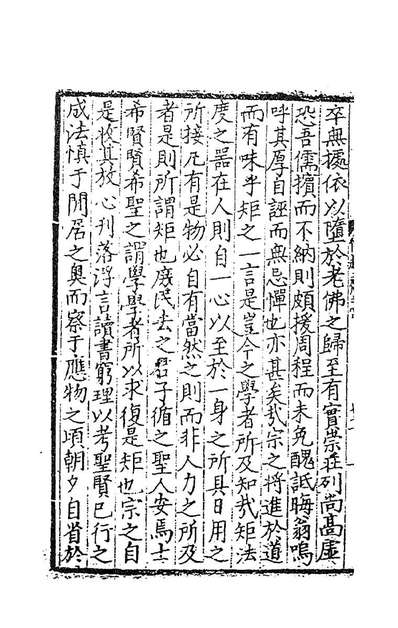 卒無據依以墮於老佛之歸至有實崇莊列尚高虛
恐吾儒擯而不納則頗援周程而未免醜詆晦翁嗚
呼其厚自誣而無忌憚也亦甚矣哉宗之將進於道
而有味乎矩之一言是豈今之學者所及知哉矩法
度之器在人則自一心以至於一身之所具日用之
所接凢有是物必自有當然之則而非人力之所及
者是則所謂矩也庻民去之君子循之聖人安焉士
希賢賢希聖之謂學學者所以求復是矩也宗之自
是收其放心刋落浮言讀書窮理以考聖賢已行之
成法慎于閒居之奥而察于應物之頃朝夕自省於